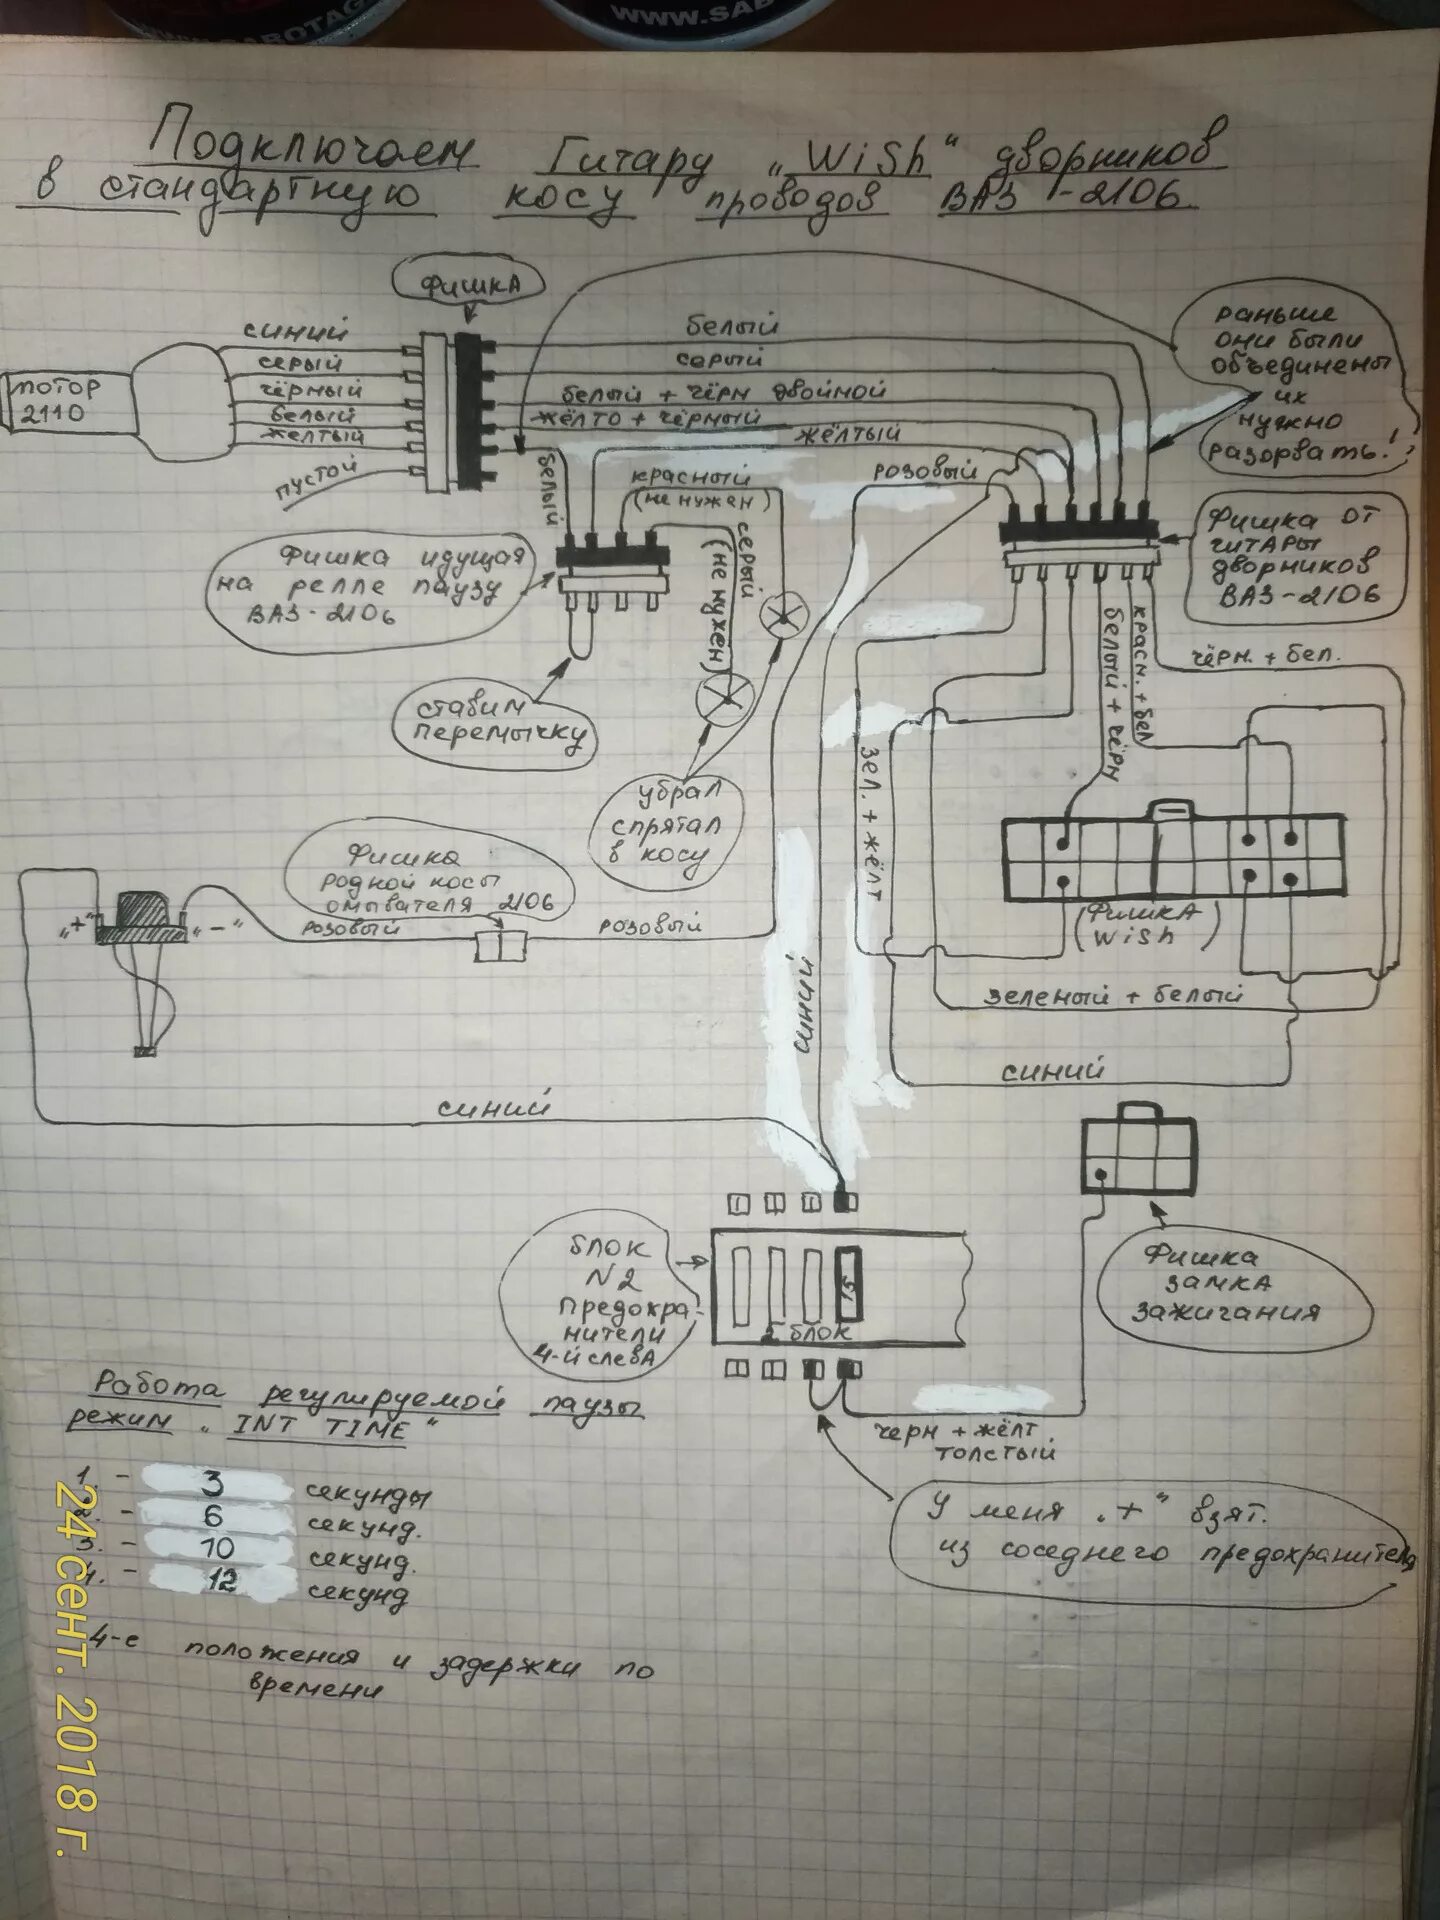 WWW.SABOTAG
WWW.SAB
Подключаем Гитару „WiSh“ дворников
в стандартную косу проводов ВАЗ-2106
фишка
синий
серый
чёрный
белый
желтый
пустой
мотор
2110
белый
серый
белый + чёрн двойной
жёлто + чёрный
жёлтый
белый
красный
(не нужен)
серый
(не нужен)
розовый
раньше
они были
объединены
их
нужно
разорвать!
Фишка от
гитары
дворников
ВАЗ-2106
Фишка идущая
на релле паузу
ВАЗ-2106
ставим
перемычку
убрал
спрятал
в косу
белый + чёрн
красн. + бел
чёрн. + бел.
зел. + жёлт
(Фишка
WiSh)
зеленый + белый
синий
Фишка
родной косы
омывателя 2106
„+“
„-“
розовый
розовый
синий
синий
блок
N2
предохра-
нители
4-й слева
2 блок
Фишка
замка
зажигания
черн + жёлт
толстый
У меня „+“ взят.
из соседнего предохранителя
Работа регулируемой паузы
режим „INT TIME“
1. - 3 секунды
2. - 6 секунд.
3. - 10 секунд.
4. - 12 секунд
4-е положения и задержки по
времени
24 сент. 2018 г.